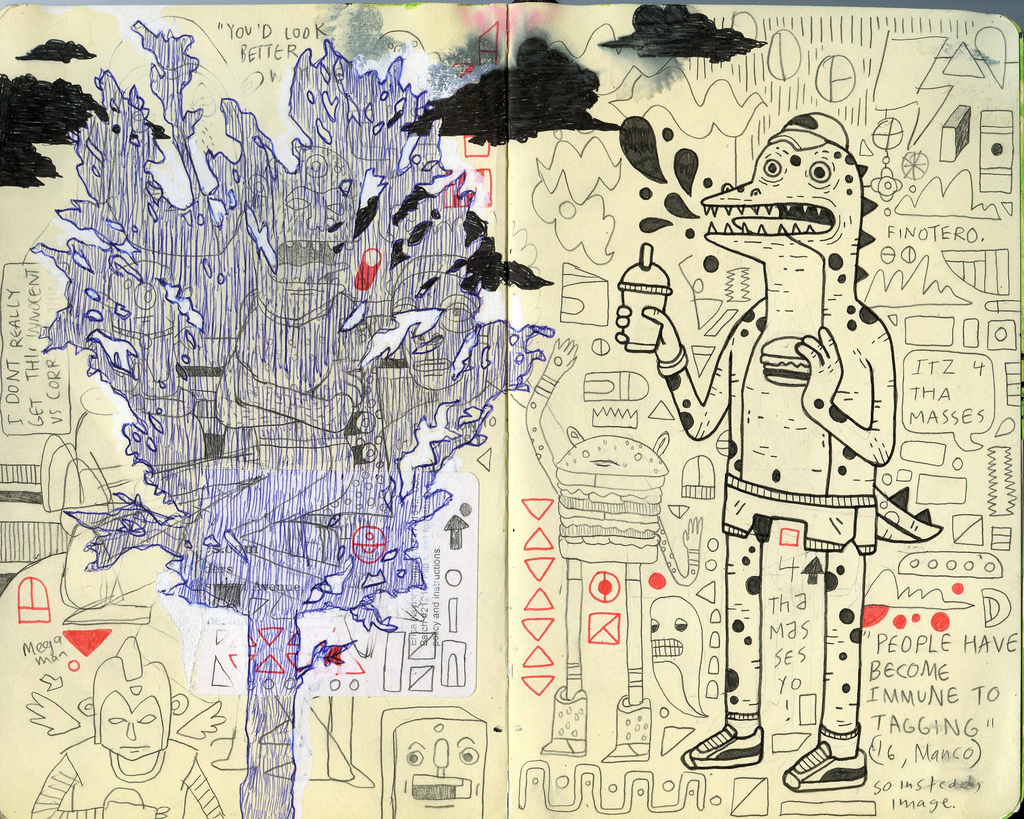 "YOU'D LOOK
BETTER
W
I DONT REALLY
GET THIS INNOCENT
VS CORP.
Avenue
policy and instructions.
Mega
man
FINOTERO.
ITZ 4
THA
MASSES
4
Tha
mas
ses
yo
"PEOPLE HAVE
BECOME
IMMUNE TO
TAGGING"
('16, Manco)
so instead,
image.